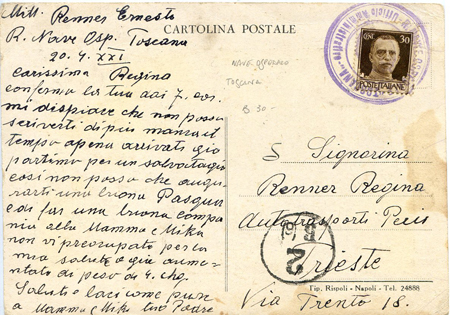 Mitt. Renner Ernesto
R. Nave Osp. Toscana
20.4.XXI
Carissima Regina
confermo la tua dai 7. cor.
mi dispiace che non posso
scriverti di più manca il
tempo apena arrivati già
partimo per un salvatagio
cosi non posso che augu-
rarti una buona Pasqua
e di far una buona compa
nia alla Mamma e Mika
non vi preocupato per la
mia salute o gia aumen-
tato di peso di 4. chg.
Saluti e baci come pure
a Mamma e Mike tuo Padre
CARTOLINA POSTALE
NAVE OSPEDALE
TOSCANA
30
POSTE ITALIANE
S Signorina
Renner Regina
Autotrasporti Pecis
Trieste
Via Trento 18.
2
Tip. Rispoli - Napoli - Tel. 24888